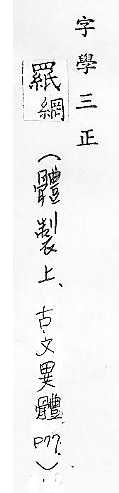 字學三正
羅網
（體製上、古文異體 P77.）